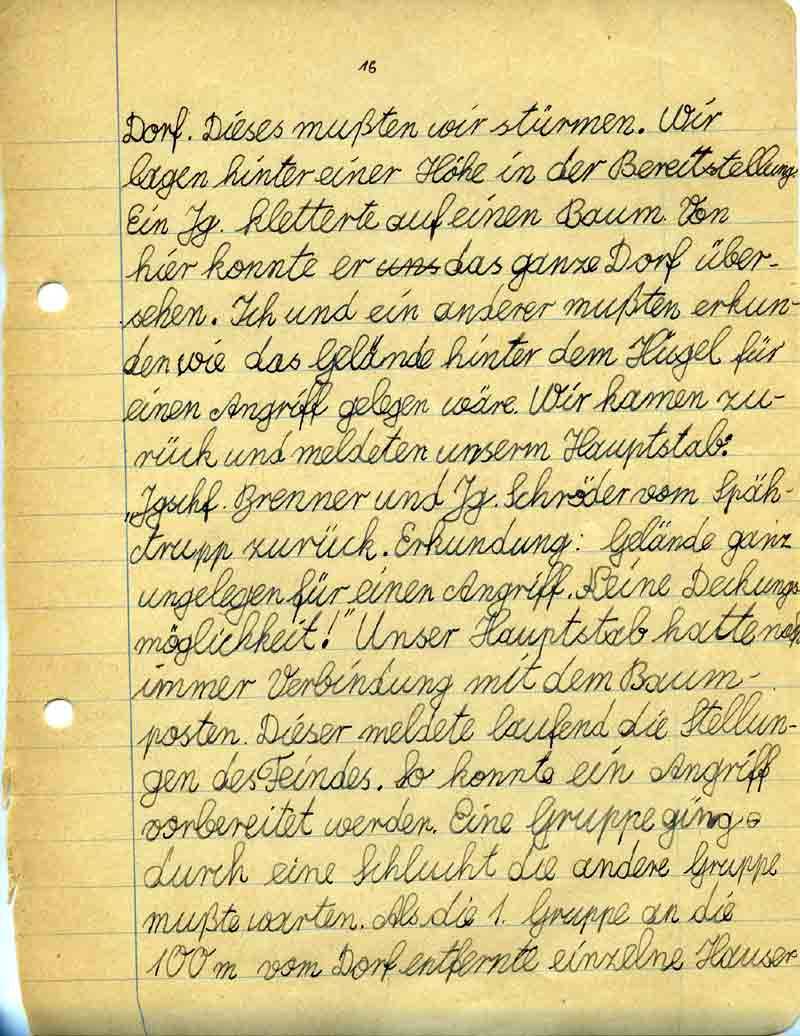 16
Dorf. Dieses mußten wir stürmen. Wir
lagen hinter einer Höhe in der Bereitstellung.
Ein Jg. kletterte auf einen Baum. Von
hier konnte er uns das ganze Dorf über-
sehen. Ich und ein anderer mußten erkun-
den wie das Gelände hinter dem Hügel für
einen Angriff gelegen wäre. Wir kamen zu-
rück und meldeten unserm Hauptstab:
„Jgschf. Brenner und Jg. Schröder vom Späh-
trupp zurück. Erkundung: Gelände ganz
ungelegen für einen Angriff. Keine Deckungs
möglichkeit!" Unser Hauptstab hatte noch
immer Verbindung mit dem Baum-
posten. Dieser meldete laufend die Stellun-
gen des Feindes. So konnte ein Angriff
vorbereitet werden. Eine Gruppe ging
durch eine Schlucht die andere Gruppe
mußte warten. Als die 1. Gruppe an die
100 m vom Dorf entfernte einzelne Hauser